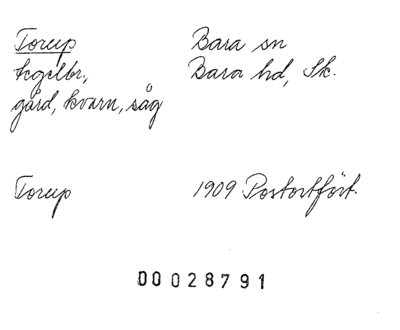 Torup Bara sn
tegelbr., Bara hd, Sk.
gård, kvarn, såg
Torup 1909 Postortfört.
00028791